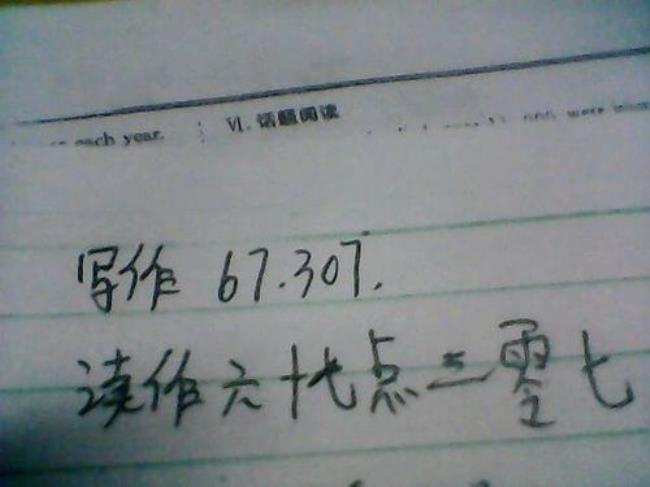 each year. Ⅵ. 话题阅读 were
写作 67.307.
读作六十七点三零七